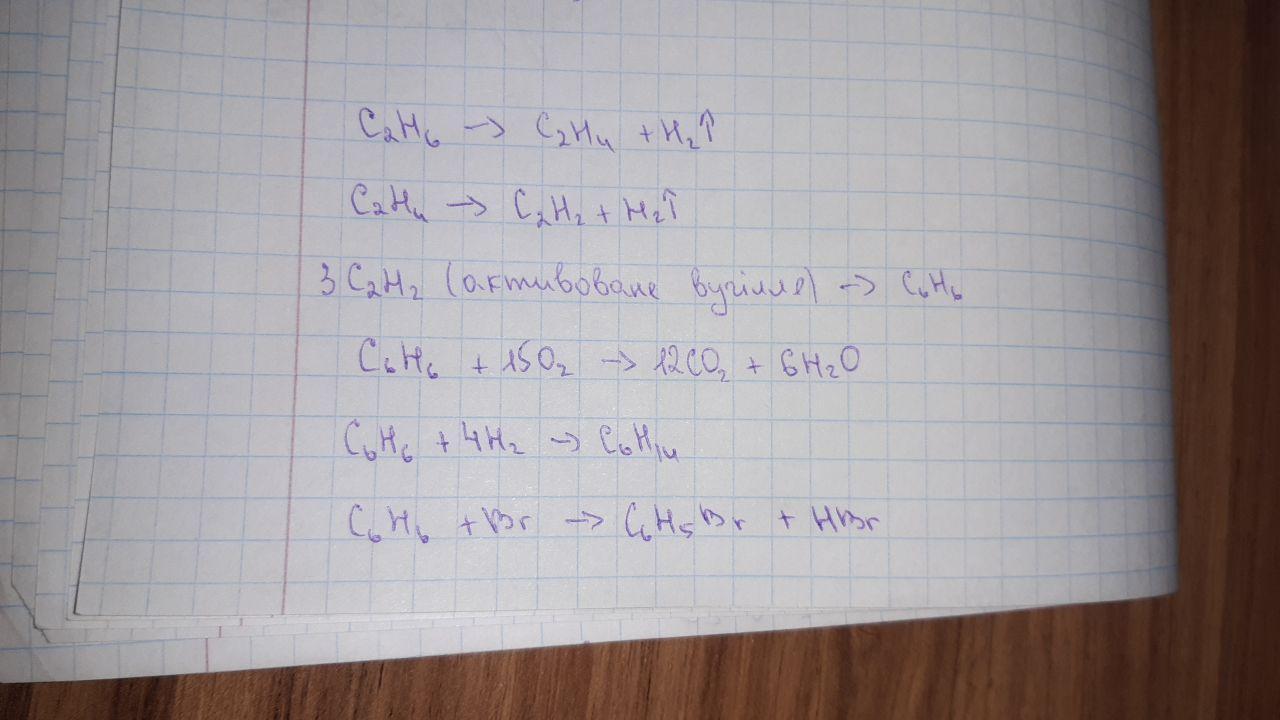 C₂H₆ → C₂H₄ + H₂↑
C₂H₄ → C₂H₂ + H₂↑
3C₂H₂ (активоване вугілля) → C₆H₆
C₆H₆ + 15O₂ → 12CO₂ + 6H₂O
C₆H₆ + 4H₂ → C₆H₁₄
C₆H₆ + Br → C₆H₅Br + HBr